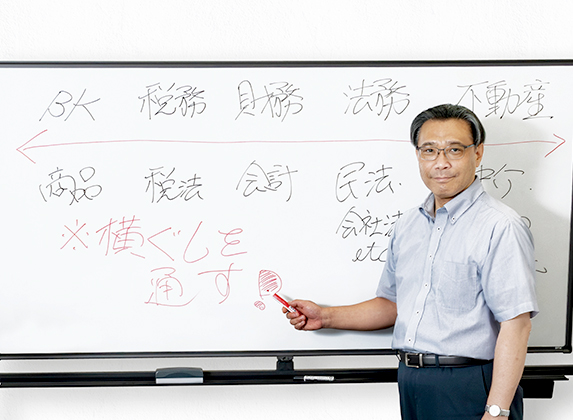 BK 税務 財務 法務 不動産
商品 税法 会計 民法.
会社法
etc
※横ぐしを
通す!